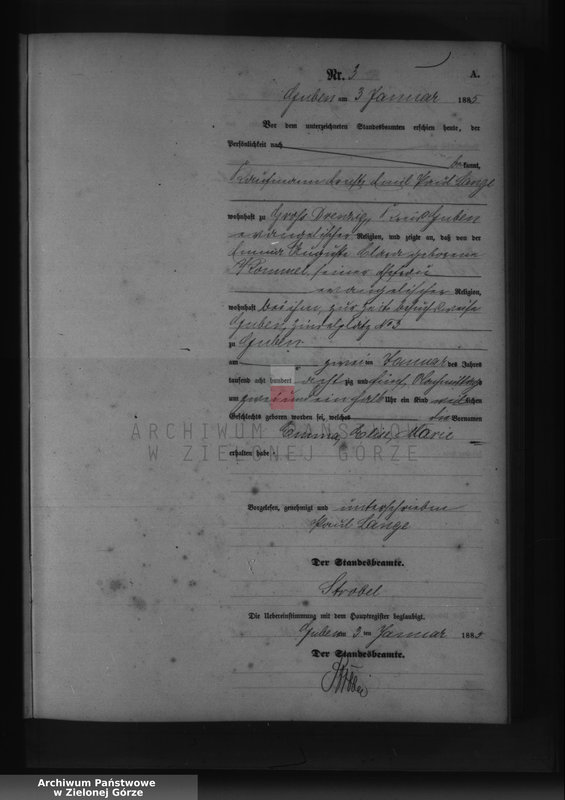 Nr. 3
A.
Guben am 3 Januar 1885
Vor dem unterzeichneten Standesbeamten erschien heute, der
Persönlichkeit nach
bekannt,
Kaufmann Emil Paul Lange
wohnhaft zu Groß Drenzig, Kreis Guben
evangelischer Religion, und zeigte an, daß von der
Emma Auguste Clara geborene
Rommel, seiner Ehefrau
evangelischer Religion,
wohnhaft bei ihm, zur Zeit besuchsweise
Guben, Zindelplatz No 3
zu Guben
am zweiten Januar des Jahres
tausend acht hundert acht zig und fünf, Nachmittags
um zwei und ein halb Uhr ein Kind weiblichen
Geschlechts geboren worden sei, welches die Vornamen
Emma, Elise, Marie
erhalten habe
Vorgelesen, genehmigt und unterschrieben
Paul Lange
Der Standesbeamte.
Strobel
Die Uebereinstimmung mit dem Hauptregister beglaubigt.
Guben am 3. ten Januar 1885
Der Standesbeamte.
Strobel
ARCHIWUM PAŃSTWOWE
W ZIELONEJ GÓRZE
Archiwum Państwowe
w Zielonej Górze